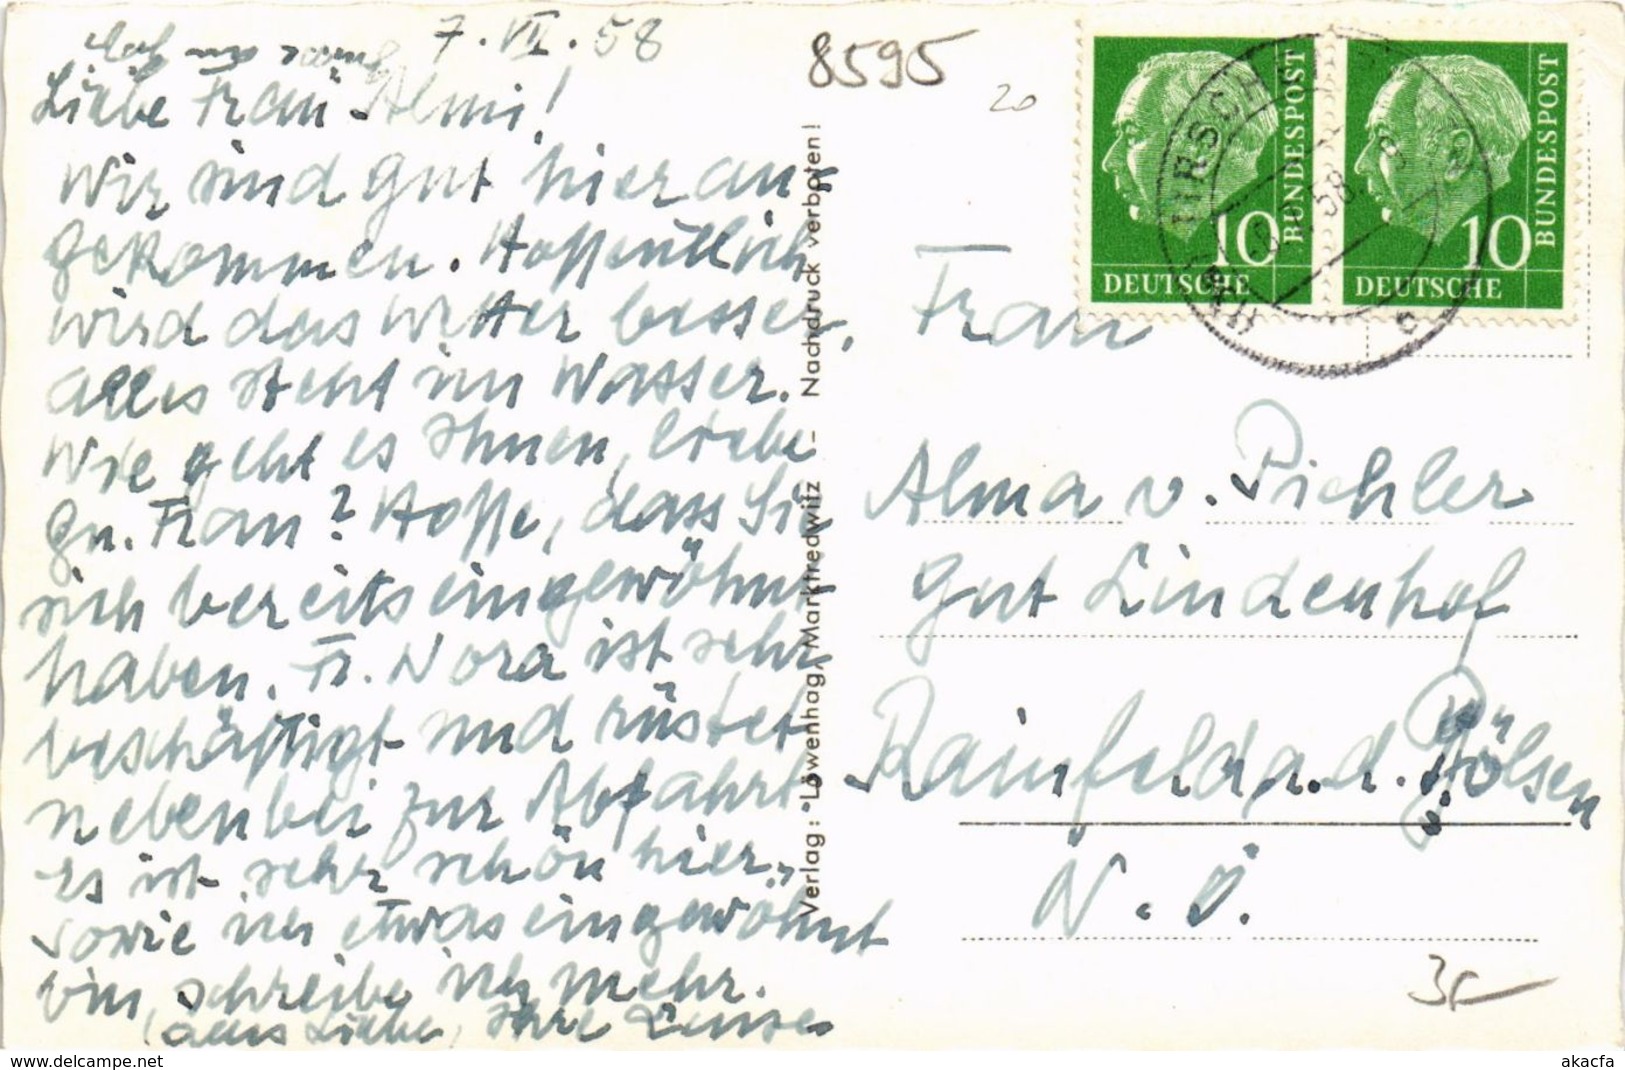 7. VII. 58
Liebe Frau Almi!
Wir sind gut hier an-
gekommen. Hoffentlich
wird das Wetter besser,
alles steht im Wasser.
Wie geht es Ihnen, liebe
gn. Frau? Hoffe, dass Sie
sich bereits eingewöhnt
haben. Fr. Nora ist sehr
beschäftigt und rüstet
nebenbei zur Abfahrt.
Es ist sehr schön hier,
sowie ich etwas eingewöhnt
bin, schreibe ich mehr.
alles Liebe, Ihre
Verlag: "Löwenhag, Marktredwitz – Nachdruck verboten!
8595
20
10
BUNDESPOST
DEUTSCHE
10
BUNDESPOST
DEUTSCHE
58
Frau
Alma v. Pichler
Gut Lindenhof
Rainfeld a. d. Gölsen
N. Ö.
Visit akacfa.delcampe.net
akacfa